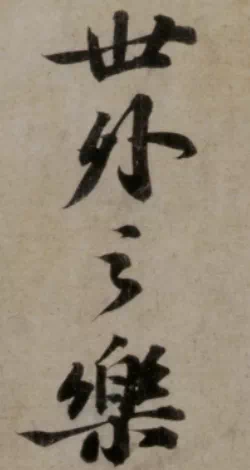 世外之樂